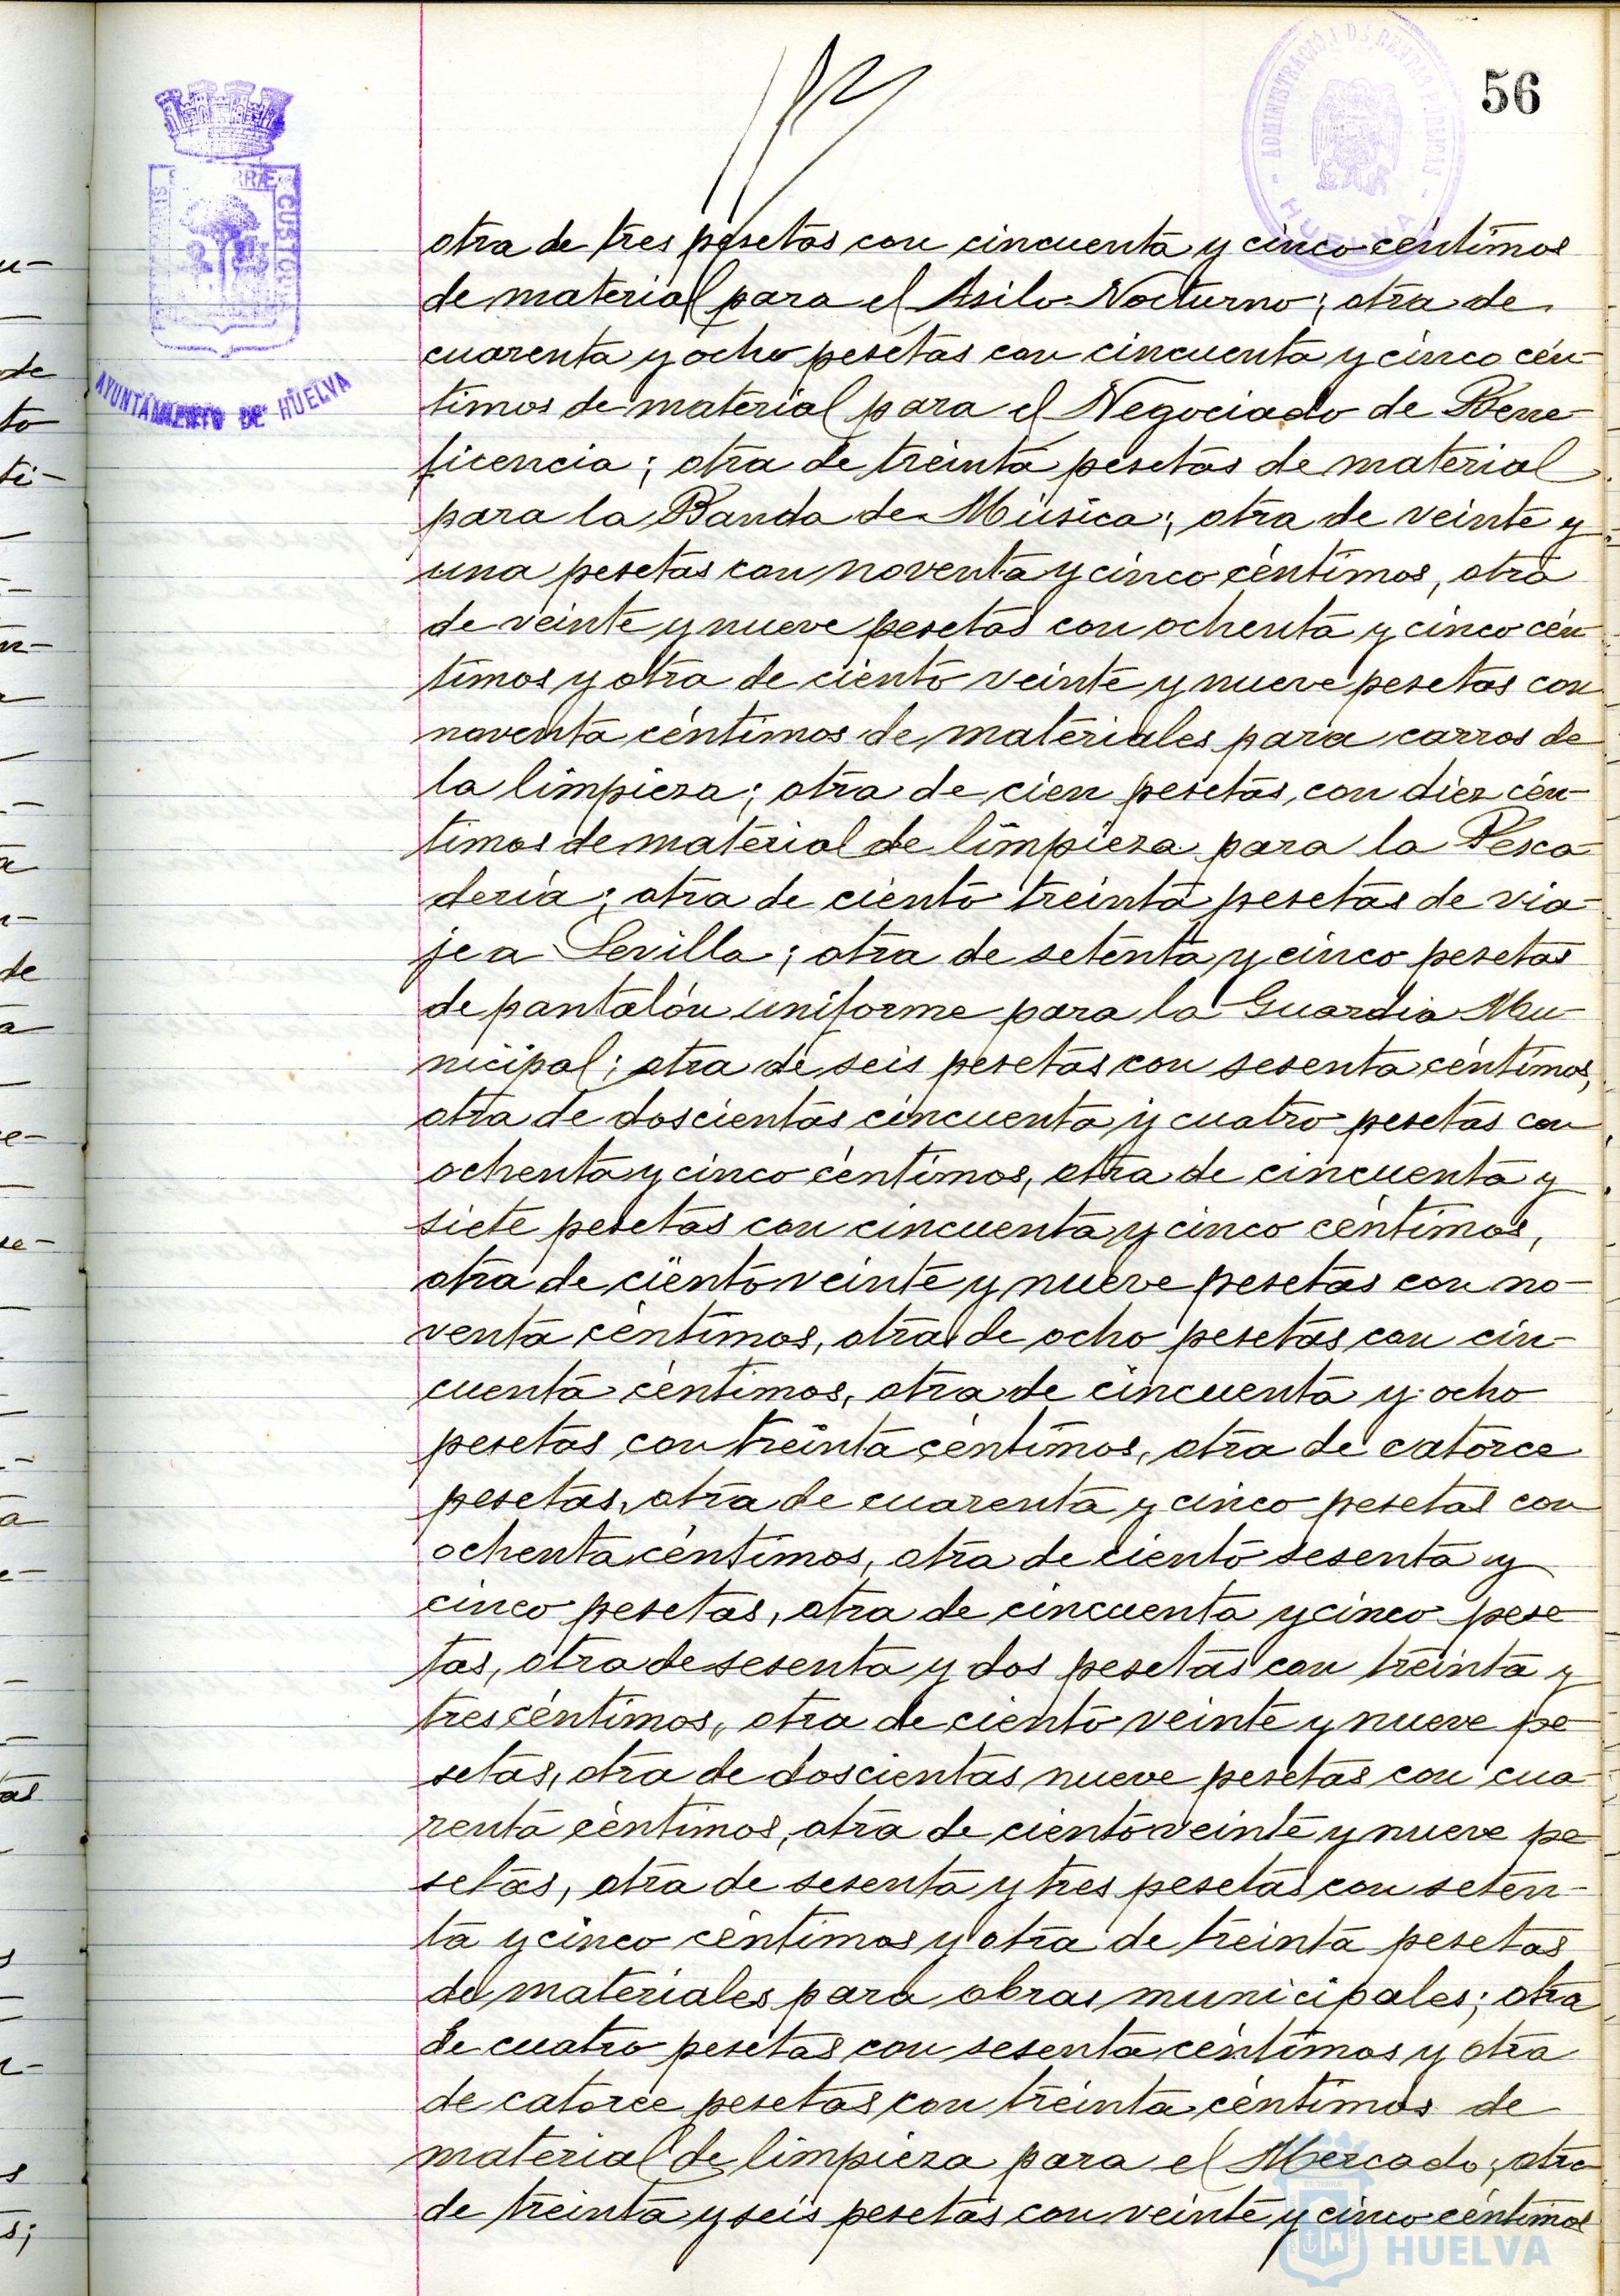 56
ADMINISTRACIÓN DE RENTAS PUBLICAS
HUELVA
CUSTO
AYUNTAMIENTO DE HUELVA
otra de tres pesetas con cincuenta y cinco céntimos
de material para el Asilo Nocturno; otra de
cuarenta y ocho pesetas con cincuenta y cinco cén-
timos de material para el Negociado de Bene-
ficencia; otra de treinta pesetas de material
para la Banda de Música; otra de veinte y
una pesetas con noventa y cinco céntimos, otra
de veinte y nueve pesetas con ochenta y cinco cén-
timos y otra de ciento veinte y nueve pesetas con
noventa céntimos de materiales para carros de
la limpieza; otra de cien pesetas con diez cén-
timos de material de limpieza para la Pesca-
dería; otra de ciento treinta pesetas de via-
je a Sevilla; otra de setenta y cinco pesetas
de pantalón uniforme para la Guardia Mu-
nicipal; otra de seis pesetas con sesenta céntimos,
otra de doscientas cincuenta y cuatro pesetas con
ochenta y cinco céntimos, otra de cincuenta y
siete pesetas con cincuenta y cinco céntimos,
otra de ciento veinte y nueve pesetas con no-
venta céntimos, otras de ocho pesetas con cin-
cuenta céntimos, otra de cincuenta y ocho
pesetas con treinta céntimos, otra de catorce
pesetas, otra de cuarenta y cinco pesetas con
ochenta céntimos, otra de ciento sesenta y
cinco pesetas, otra de cincuenta y cinco pese-
tas, otra de sesenta y dos pesetas con treinta y
tres céntimos, otra de ciento veinte y nueve pe-
setas, otra de doscientas nueve pesetas con cua-
renta céntimos, otra de ciento veinte y nueve pe-
setas, otra de sesenta y tres pesetas con seten-
ta y cinco céntimos y otra de treinta pesetas
de materiales para obras municipales; otra
de cuatro pesetas con sesenta céntimos y otra
de catorce pesetas con treinta céntimos de
material de limpieza para el Mercado; otra
de treinta y seis pesetas con veinte y cinco céntimos
HUELVA